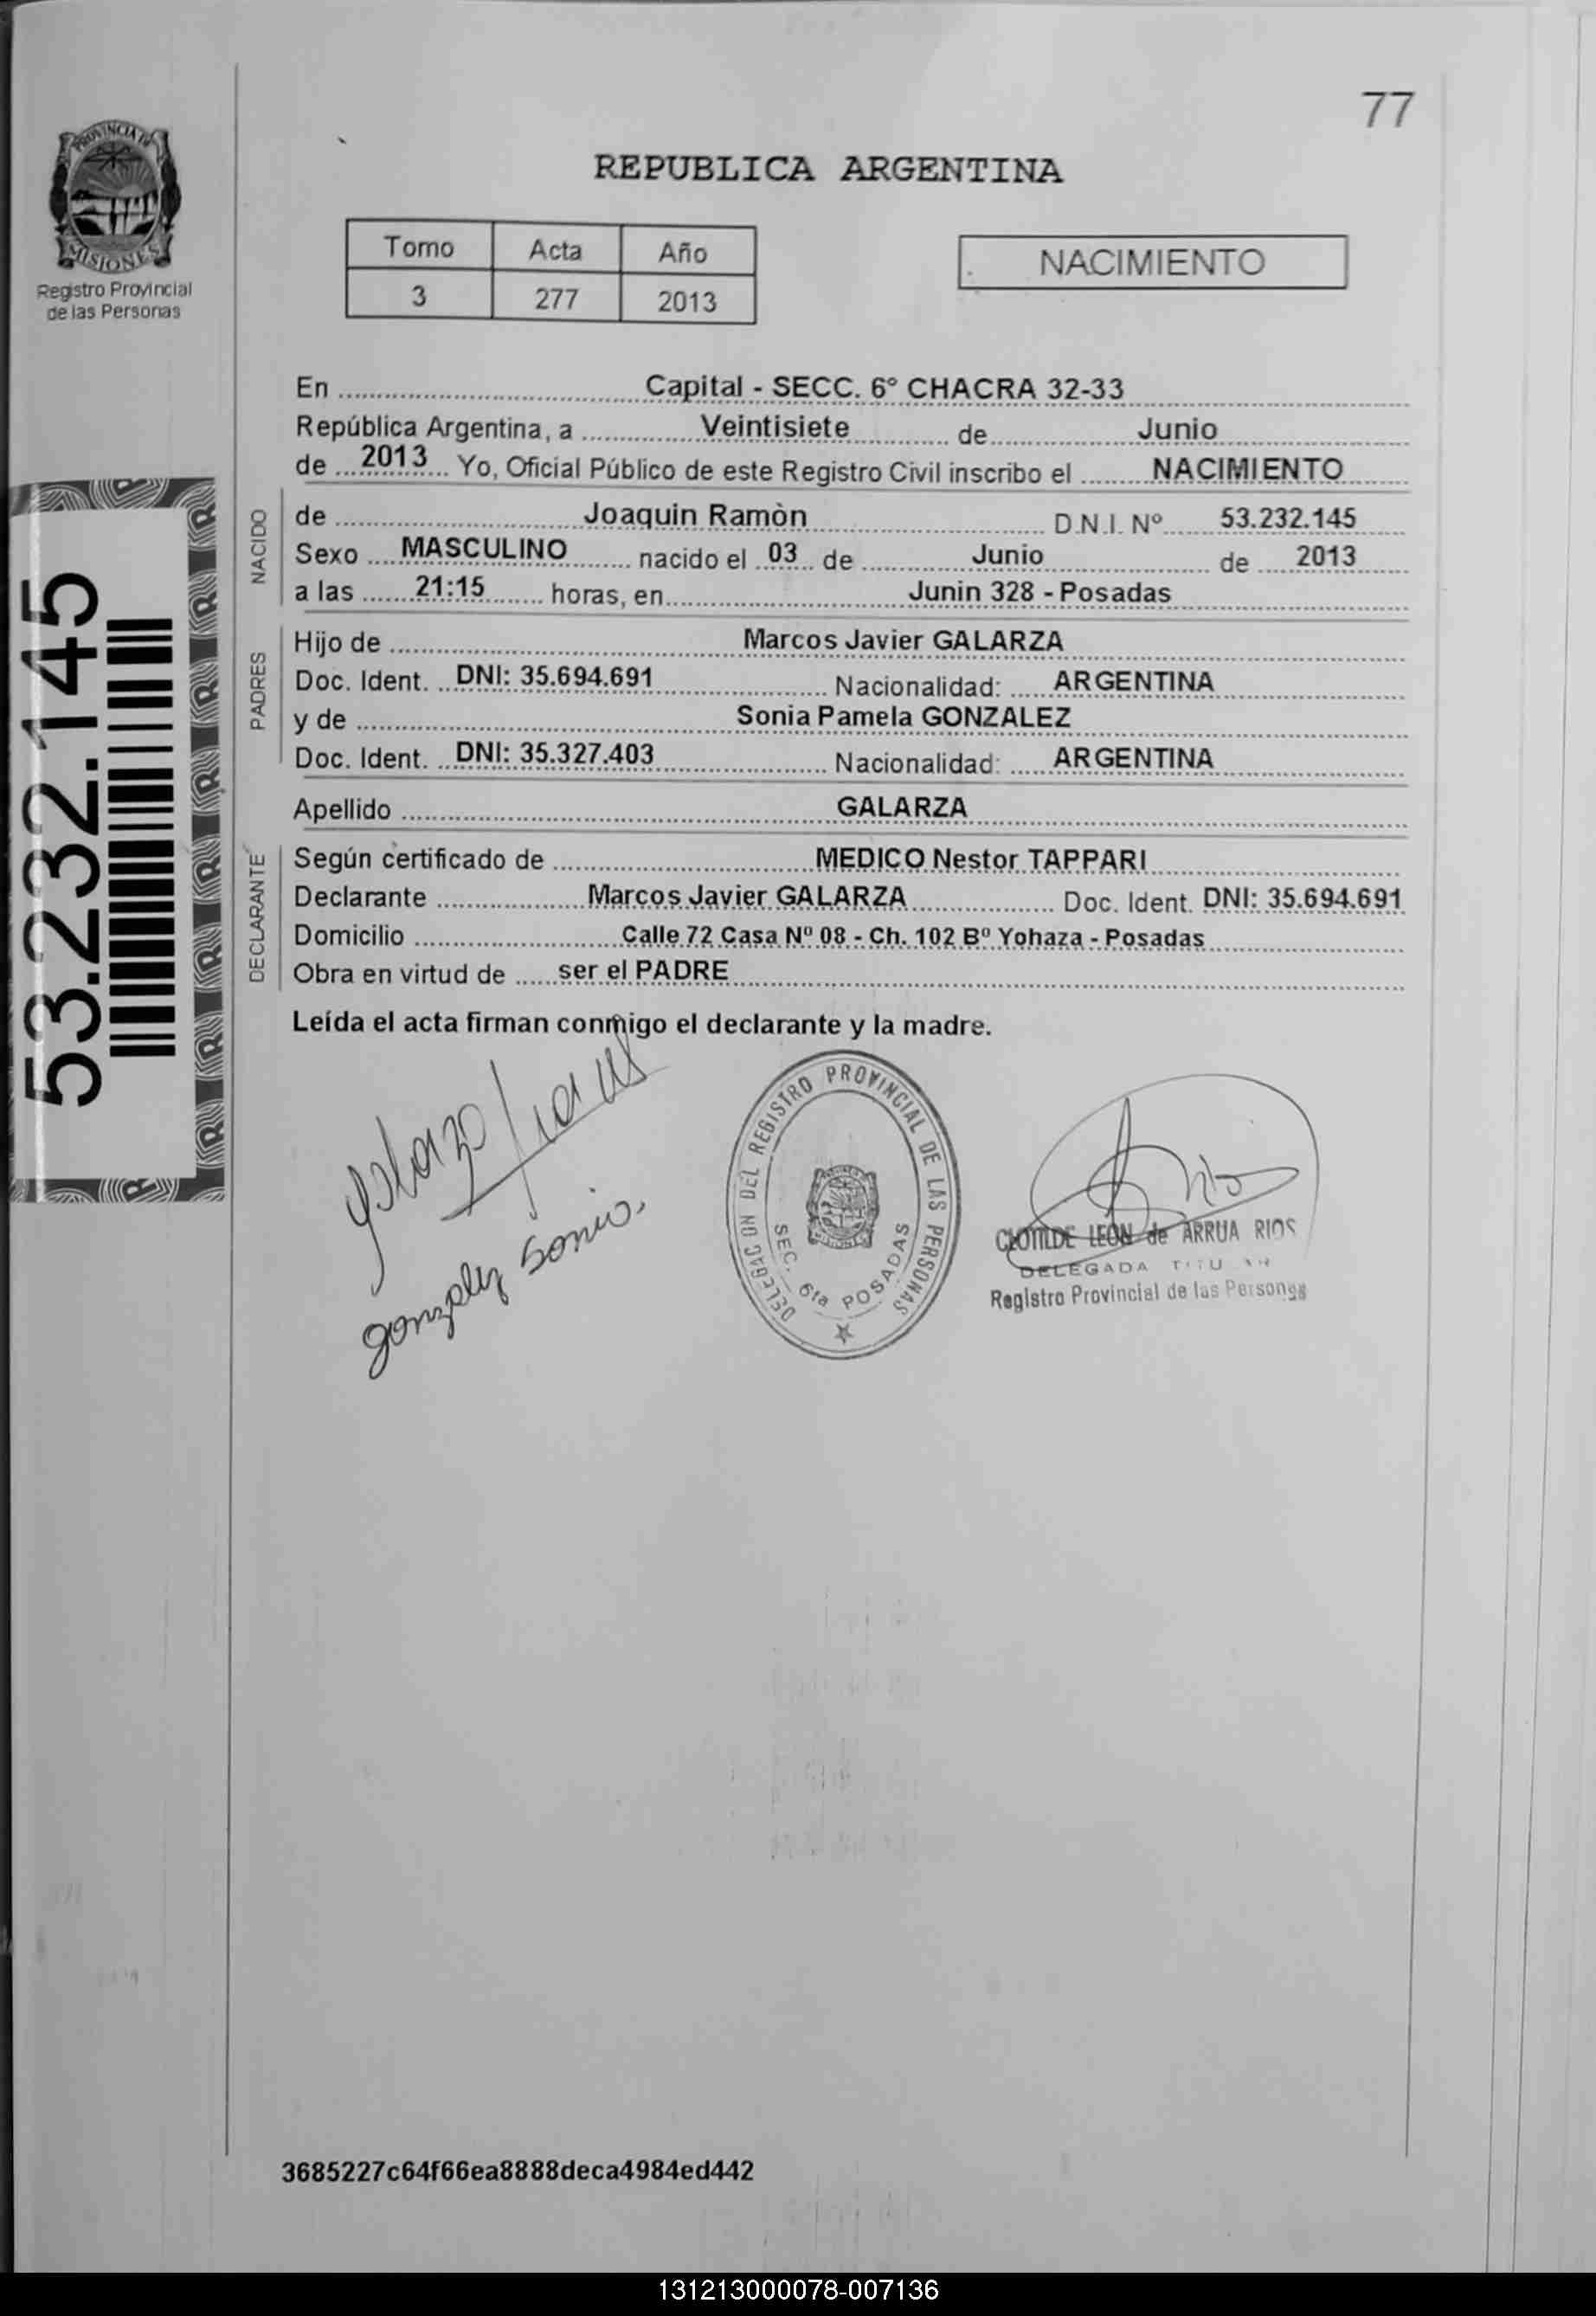 77
PROVINCIA DE
MISIONES
Registro Provincial
de las Personas
REPUBLICA ARGENTINA
Tomo Acta Año
3 277 2013
NACIMIENTO
En Capital - SECC. 6º CHACRA 32-33
República Argentina, a Veintisiete de Junio
de 2013 Yo, Oficial Público de este Registro Civil inscribo el NACIMIENTO
NACIDO
de Joaquin Ramòn D.N.I. Nº 53.232.145
Sexo MASCULINO nacido el 03 de Junio de 2013
a las 21:15 horas, en Junin 328 - Posadas
PADRES
Hijo de Marcos Javier GALARZA
Doc. Ident. DNI: 35.694.691 Nacionalidad: ARGENTINA
y de Sonia Pamela GONZALEZ
Doc. Ident. DNI: 35.327.403 Nacionalidad: ARGENTINA
Apellido GALARZA
DECLARANTE
Según certificado de MEDICO Nestor TAPPARI
Declarante Marcos Javier GALARZA Doc. Ident. DNI: 35.694.691
Domicilio Calle 72 Casa Nº 08 - Ch. 102 Bº Yohaza - Posadas
Obra en virtud de ser el PADRE
Leída el acta firman conmigo el declarante y la madre.
53.232.145
galarza
gonzalez sonia.
DELEGACION DEL REGISTRO PROVINCIAL DE LAS PERSONAS
SEC. 6ta POSADAS
CLOTILDE LEON de ARRUA RIOS
DELEGADA
Registro Provincial de las Personas
3685227c64f66ea8888deca4984ed442
131213000078-007136